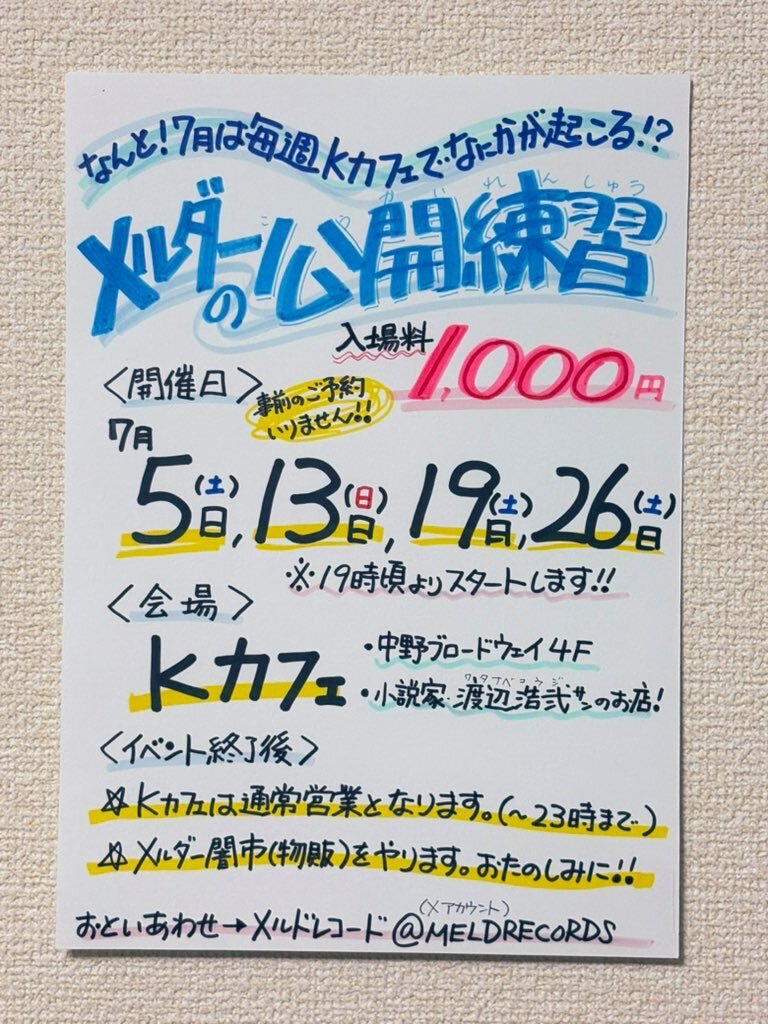 なんと!7月は毎週Kカフェでなにかが起こる!?
メルダーの公開練習
こうかいれんしゅう
入場料 1,000円
〈開催日〉
事前のご予約
いりません!!
7月
5日(土), 13日(日), 19日(土), 26日(土)
※19時頃よりスタートします!!
〈会場〉
Kカフェ
・中野ブロードウェイ4F
ワタナベコウジ
・小説家 渡辺浩弐サンのお店!
〈イベント終了後〉
☆Kカフェは通常営業となります。(~23時まで)
☆メルダー闇市(物販)をやります。おたのしみに!!
(Xアカウント)
おといあわせ→メルドレコード @MELDRECORDS